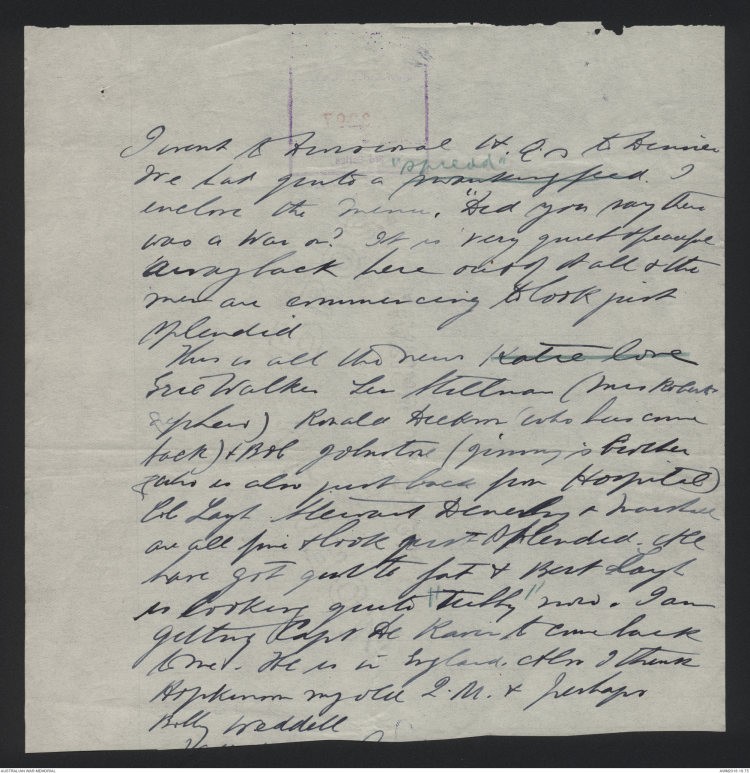 I went to Divisional H.Q. to Dinner
"spread"
We had quite a feed. I
enclose the menu. "Did you say there
was a War on? It is very quiet & peaceful
away back here out of it all & the
men are commencing to look just
splendid
This is all the news Katie love
Eric Walker Len Stillman (Mrs Roberts
nephew) Ronald Dickson (who has come
back) & Bob Johnstone (Jimmy's brother
who is also just back from Hospital)
Col Layh Stewart Denehy & Marshall
are all fine & look just splendid. All
have got quite fat & Bert Layh
is looking quite "Tubby" now. I am
getting Capt De Ravin to come back
to me. He is in England. Also I think
Hopkinson my old Q.M. & perhaps
Billy Waddell
2207
AUSTRALIAN WAR MEMORIAL